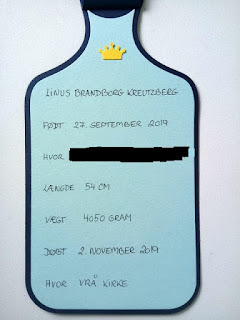 LINUS BRANDBORG KREUTZBERG
FØDT 27. SEPTEMBER 2019
HVOR
LÆNGDE 54 CM
VÆGT 4050 GRAM
DØBT 2. NOVEMBER 2019
HVOR VRÅ KIRKE